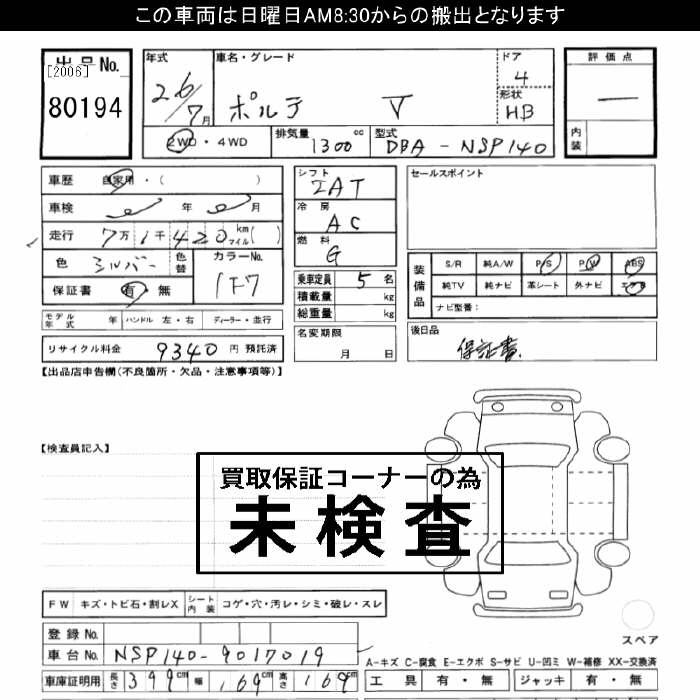 この車両は日曜日AM8:30からの搬出となります
出品No.
[2006]
80194
年式
26/7月
車名・グレード
ポルテ V
ドア
4
形状
HB
評価点
—
内装
2WD・4WD
排気量
1300 cc
型式
DBA-NSP140
車歴 自家用・( )
車検 年 月
走行 7万1千420 km マイル( )
色 シルバー 色替 カラーNo. 1F7
保証書 有 無
モデル年式 年 ハンドル 左・右 ディーラー・並行
リサイクル料金 9340 円 預託済
シフト
IAT
冷房
AC
燃料
G
乗車定員 5 名
積載量 kg
総重量 kg
名変期限
月 日
セールスポイント
装備品
S/R 純A/W P/S P/W ABS
純TV 純ナビ 革シート 外ナビ エアB
ナビ型番:
後日品
保証書
【出品店申告欄(不良箇所・欠品・注意事項等)】
【検査員記入】
買取保証コーナーの為
未検査
FW キズ・トビ石・割レX シート内装 コゲ・穴・汚レ・シミ・破レ・スレ
登録No.
車台No. NSP140-9017019
車庫証明用 長さ 399 cm 幅 169 cm 高さ 169 cm
スペア
A-キズ C-腐食 E-エクボ S-サビ U-凹ミ W-補修 XX-交換済
工具 有・無 ジャッキ 有・無